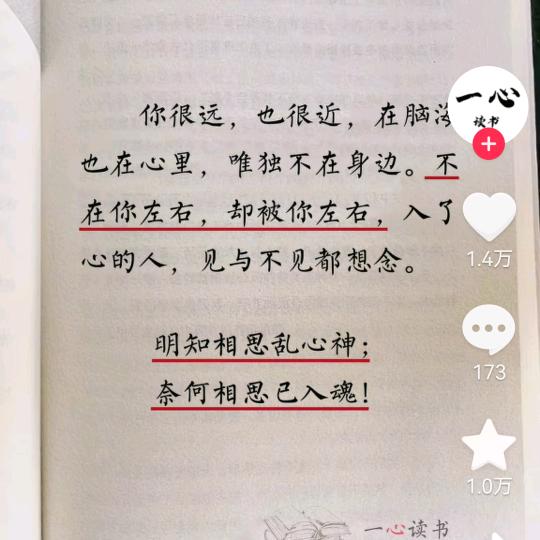 你很远，也很近，在脑海
也在心里，唯独不在身边。不
在你左右，却被你左右，入了
心的人，见与不见都想念。
明知相思乱心神；
奈何相思已入魂！
一心
读书
1.4万
173
1.0万
一心读书